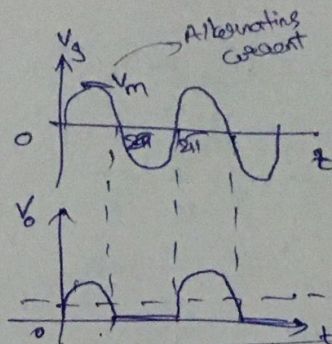 Alternating
current
Vs
Vm
0
2π
t
Vo
0
t